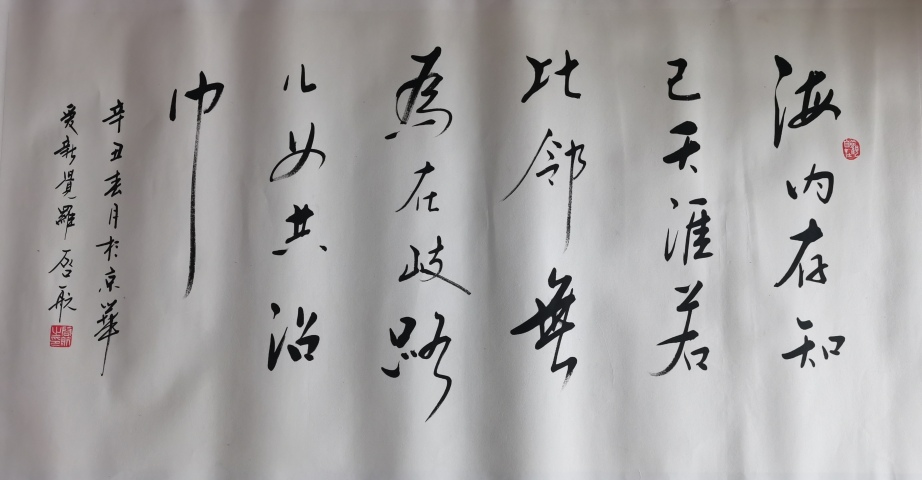 海内存知
己天涯若
比邻無
為在歧路
儿女共沾
巾
辛丑春月於京華
爱新覺羅启航